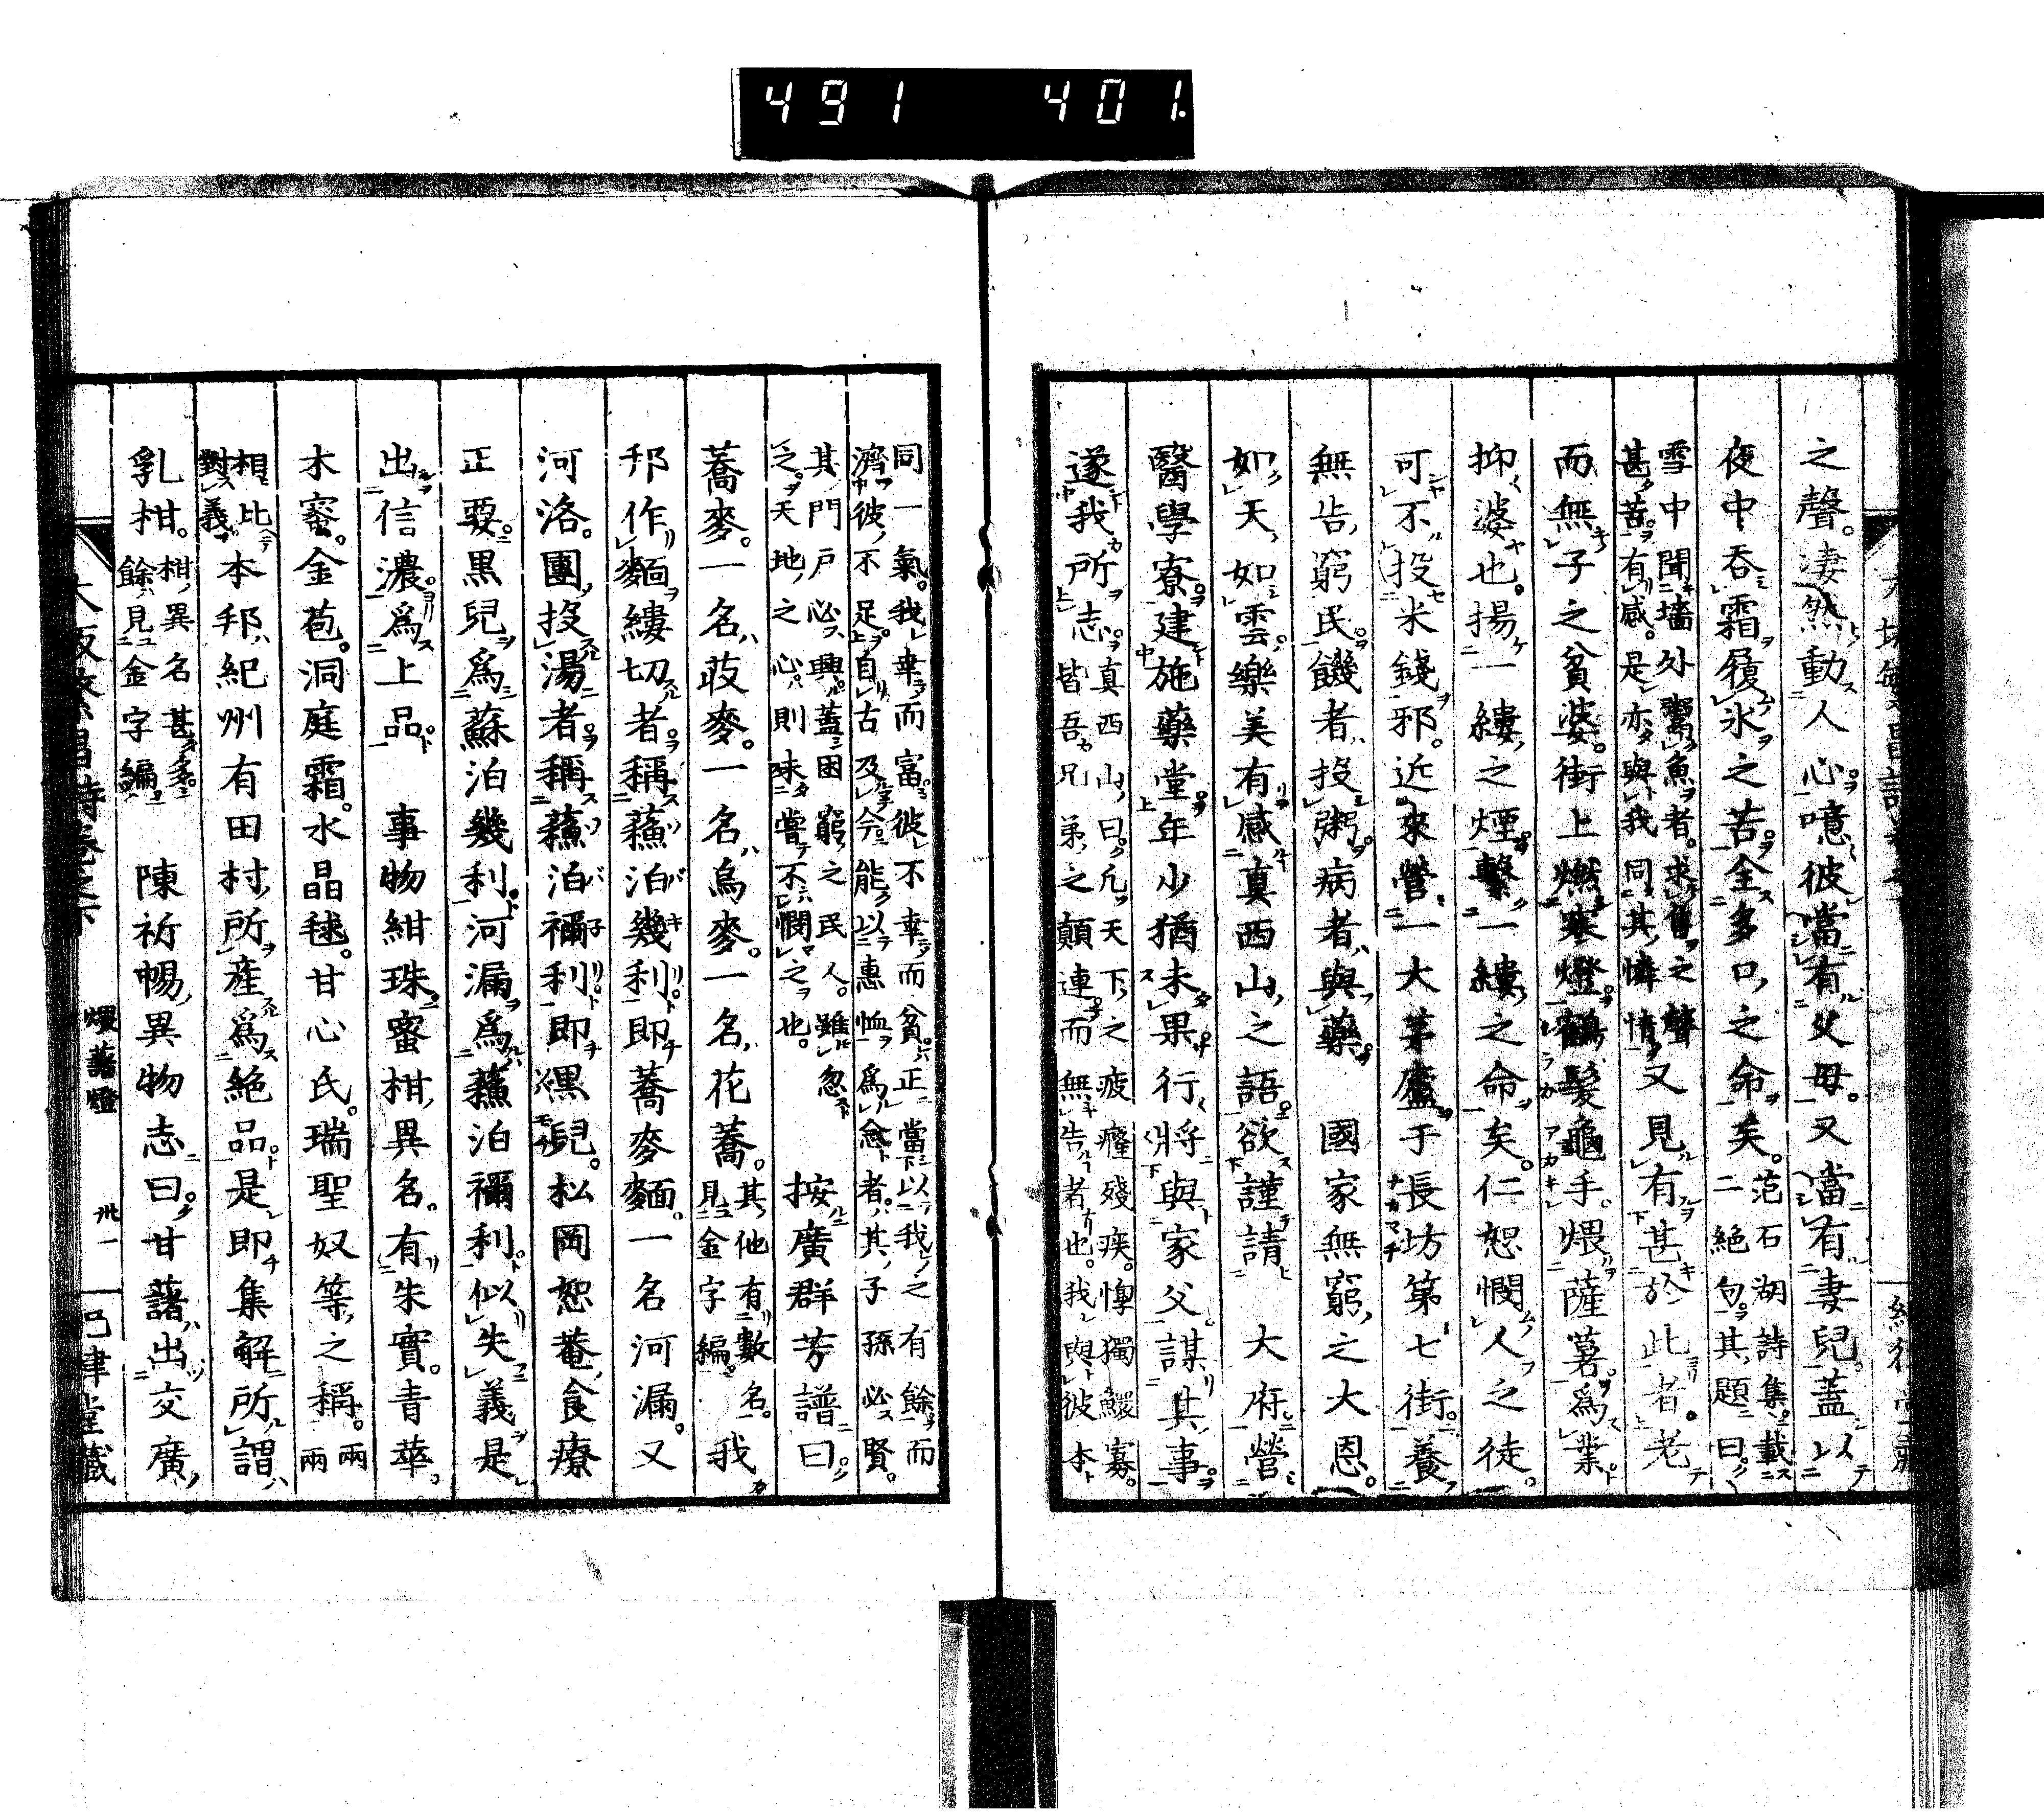 491 401
之聲。凄然動人心。噫彼當有父母。又當有妻兒。蓋以
夜中吞霜履氷之苦。全多口之命矣。范石湖詩集載
二絶句。其題曰
雪中聞墻外鬻魚者。求售之聲
甚苦。有感。是亦與我同其憐情。又見有甚於此者。老
而無子之貧婆。街上燃寒燈。鶴髮龜手。煨薩薯爲業
抑婆也。揚一縷之煙。繫一縷之命矣。仁恕憫人之徒。
可不投米錢邪。近來營一大茅廬于長坊第七街。養
無告窮民。饑者投粥。病者與藥 國家無窮之大恩。
如天如雲。樂美有感真西山之語。欲謹請 大府。營
醫學寮。建施藥堂。年少猶未果行。將與家父謀其事。
遂我所志。真西山曰。凡天下之疲癃殘疾。惸獨鰥寡。
皆吾兄弟之顛連而無告者也。我與彼本
同一氣。我幸而富。彼不幸而貧。正當以我之有餘而
濟彼不足。自古及今。能以惠恤爲念者。其子孫必賢。
其門戸必興。蓋困窮之民人。雖忽
之。天地之心。則未嘗不憫之也。 按廣群芳譜曰
蕎麥。一名荍麥。一名烏麥。一名花蕎。其他有數名。
見金字編。我
邦作麵縷切者。稱蘓泊幾利。即蕎麥麵。一名河漏。又
河洛。團投湯者。稱蘓泊禰利。即黑兒。松岡恕菴食療
正要。黑兒爲蘇泊幾利。河漏爲蘓泊禰利。似失義。是
出信濃。爲上品 事物紺珠。蜜柑異名。有朱實。青華。
木蜜。金苞。洞庭霜。水晶毬。甘心氏。瑞聖奴等之稱。兩
兩
相比
對義。本邦紀州有田村所産爲絶品。是即集解所謂
乳柑。柑異名甚多。
餘見金字編 陳祈暢異物志曰。甘藷出交廣
煨藷燈 卅一